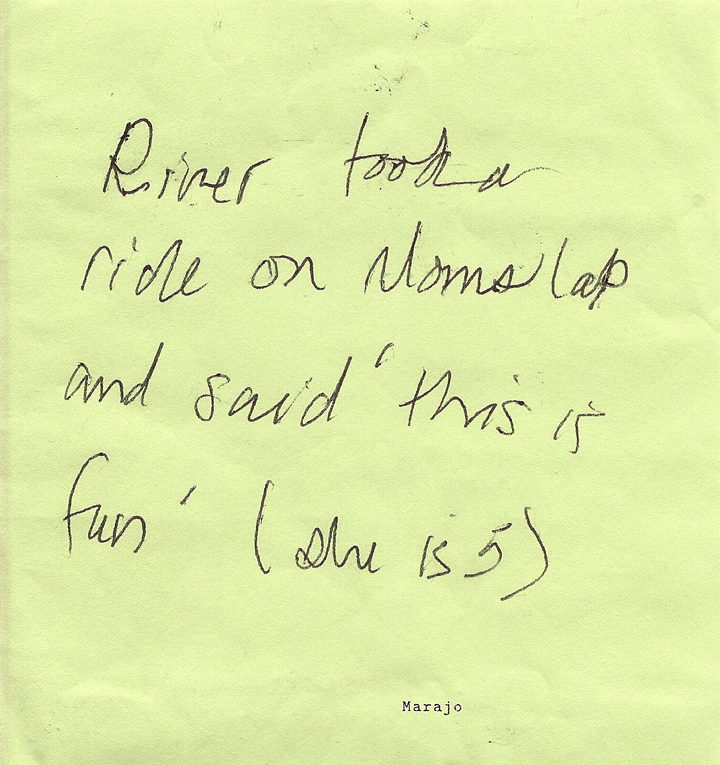 River took a
ride on Moms lap
and said 'this is
fun' (she is 5)
Marajo